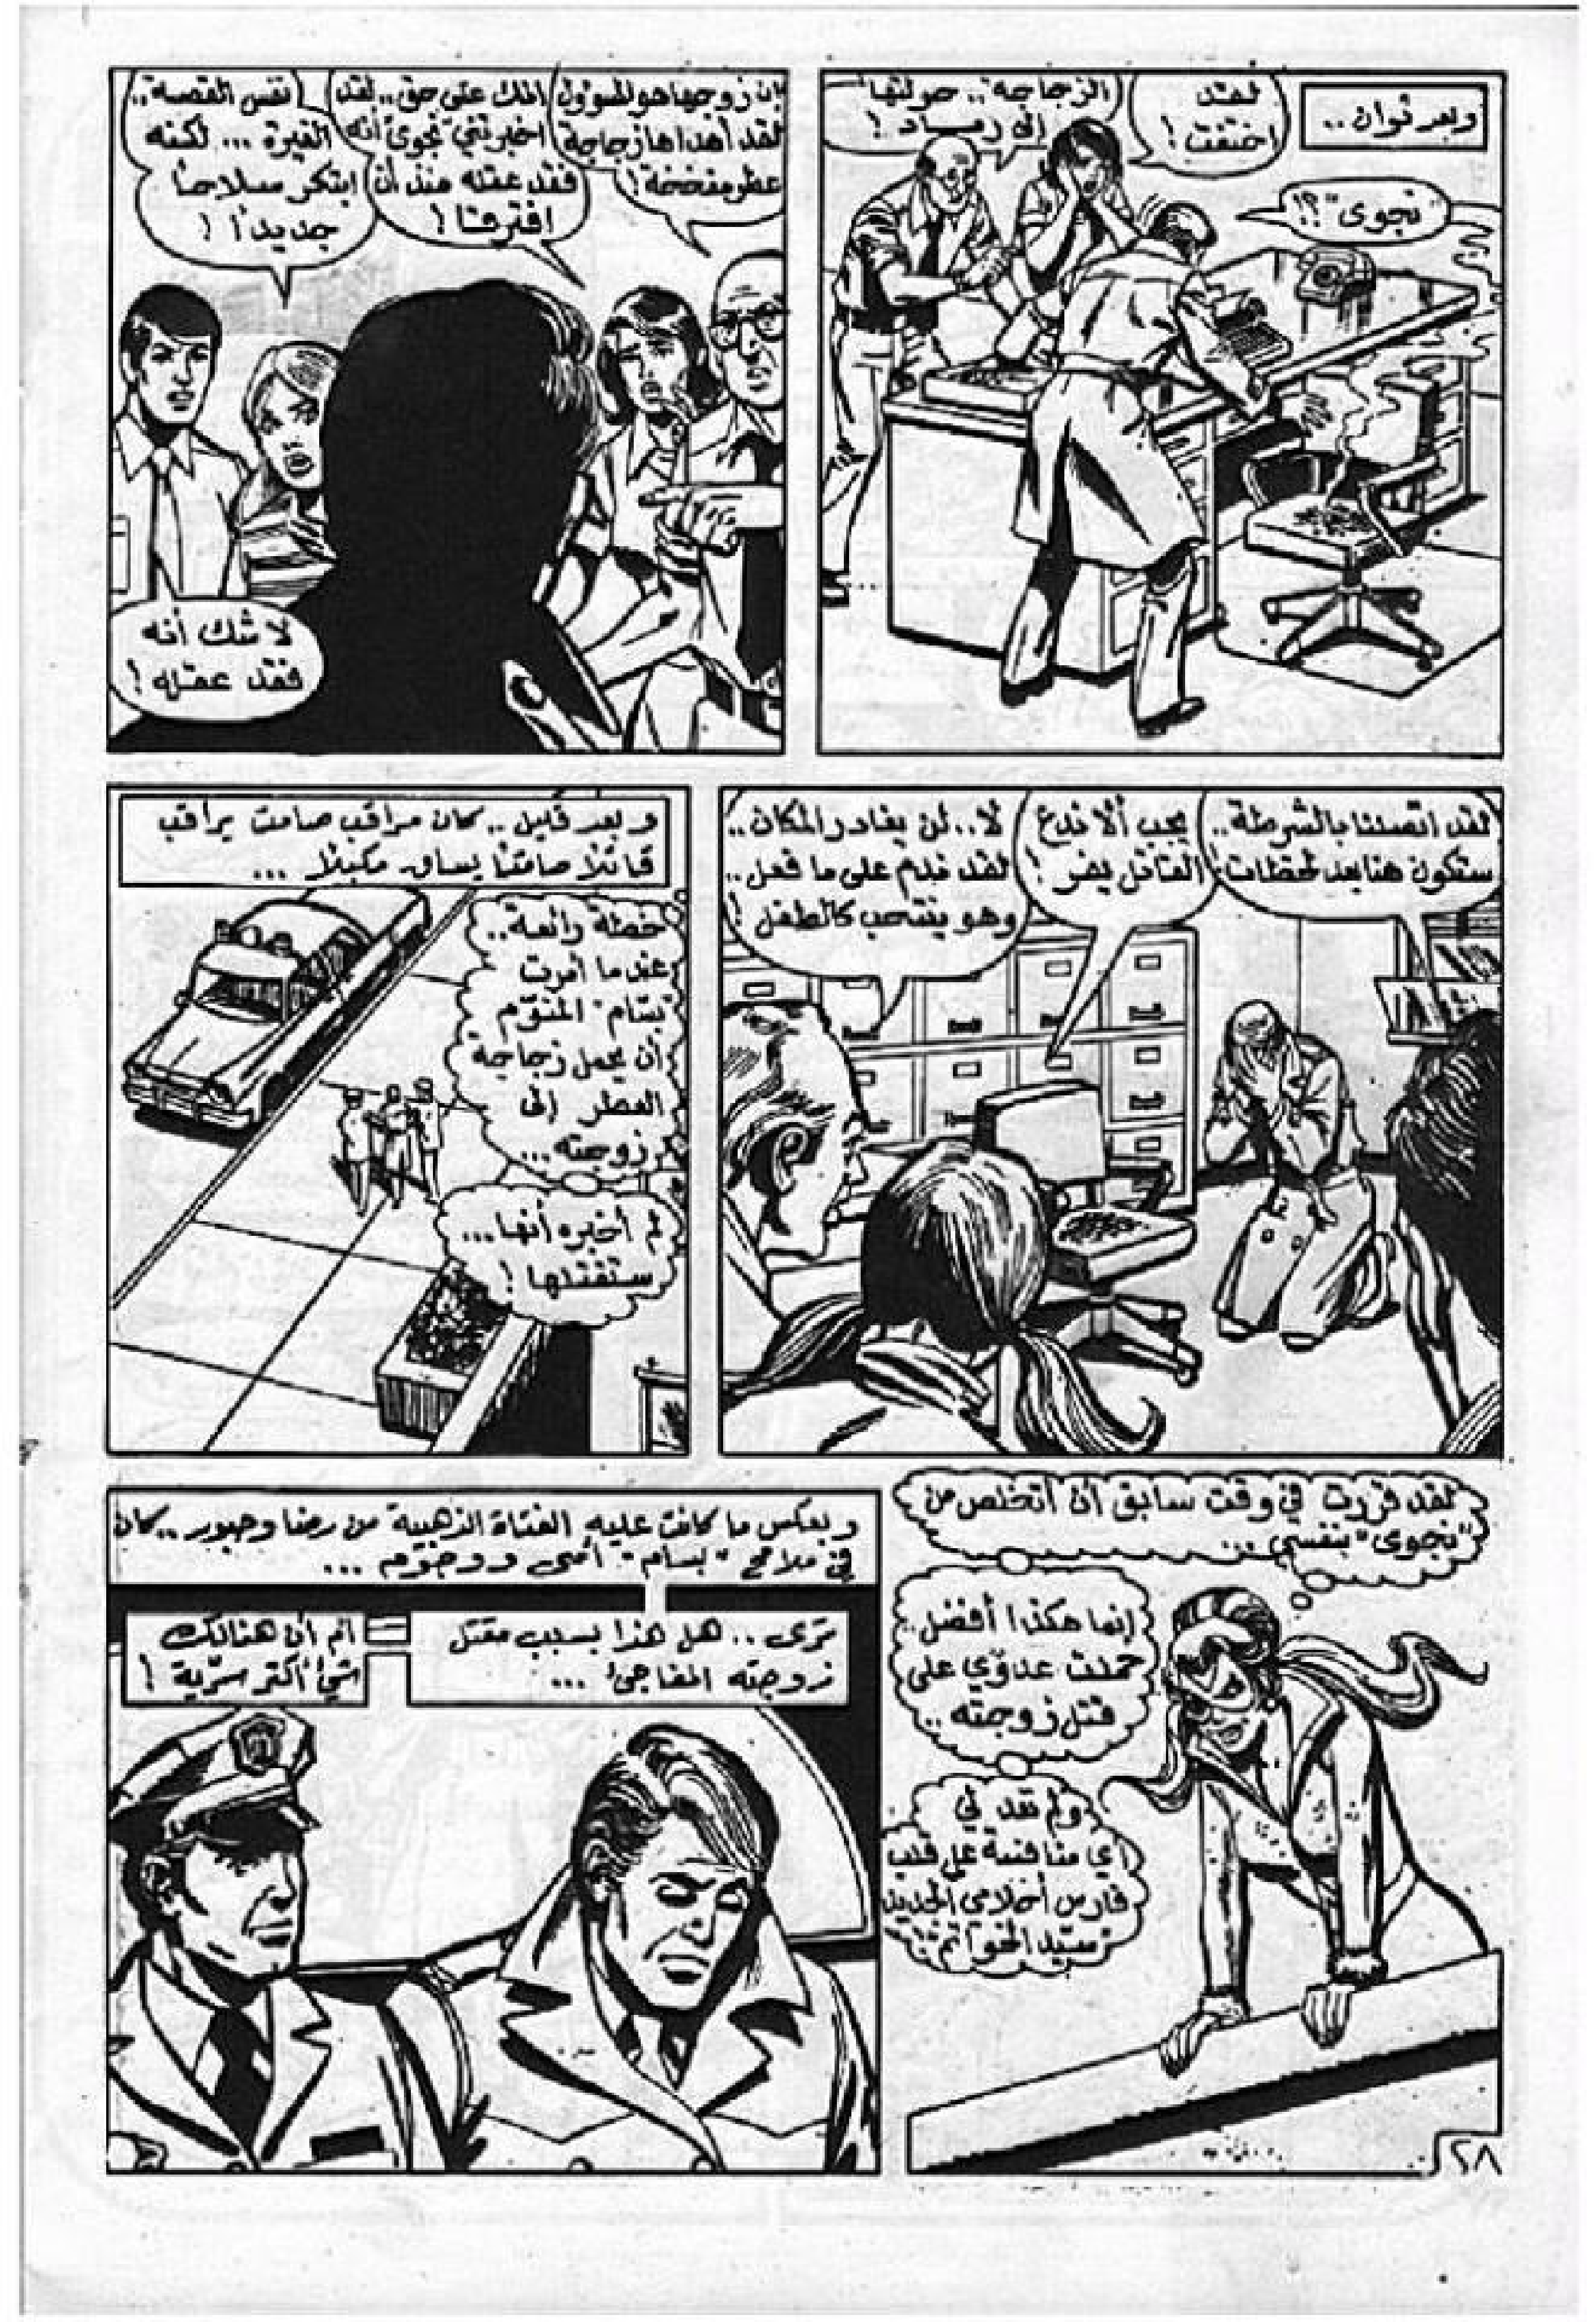 وبعد ثوان..
لقد
اختفت!
الزجاجة".. حولتها
إلى رماد!
"نجوى"؟!
إن زوجها هو المسؤول
لقد أهداها زجاجة
عطر مفخخة!
انك على حق.. لقد
اخبرتني "نجوى" أنه
فقد عقله منذ أن
افترقا!
نفس القصة..
الغيرة... لكنه
ابتكر سلاحاً
جديداً!
لا شك أنه
فقد عقله!
لقد اتصلنا بالشرطة..
ستكون هنا بعد لحظات!
يجب ألا ندع
القاتل يفر!
لا.. لن يغادر المكان..
لقد ندم على ما فعل..
وهو ينتحب كالطفل!
وبعد قليل.. كان مراقب صامت يراقب
قاتلا صامتا يساق مكبلا...
خطة رائعة..
عندما أمرت
"بسام" المنوّم
أن يحمل زجاجة
العطر إلى
زوجته...
لم أخبره أنها...
ستقتلها!
لقد قررت في وقت سابق أن أتخلص من
"نجوى" بنفسي...
إنما هكذا أفضل..
حملت عدوّي على
قتل زوجته..
ولم تعد لي
أي منافسة على قلب
فارس أحلامي الجديد
سيّد الخواتم..
وبعكس ما كانت عليه الفتاة الذهبية من رضا وحبور.. كان
في ملامح "بسام" أسى ووجوم...
ترى.. هل هذا بسبب مقتل
زوجته المفاجئ...
أم أن هنالك
شيئ أكثر سرّية!
٢٨